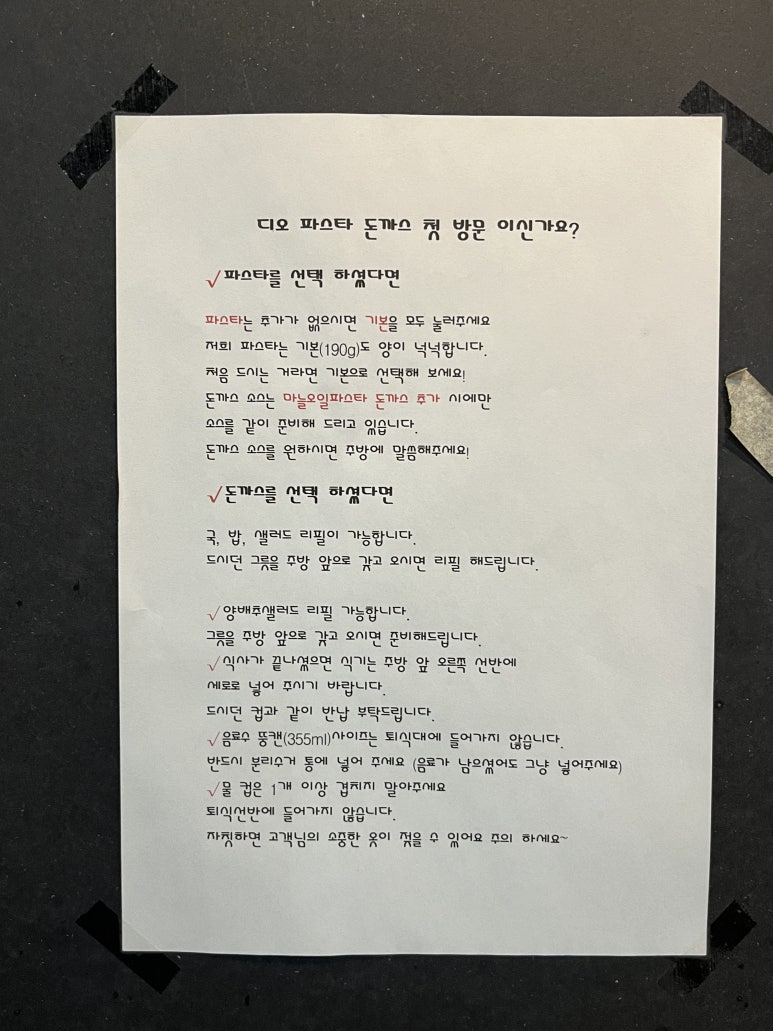 디오 파스타 돈까스 첫 방문 이신가요?
√파스타를 선택 하셨다면
파스타는 추가가 없으시면 기본을 모두 눌러주세요
저희 파스타는 기본(190g)도 양이 넉넉합니다.
처음 드시는 거라면 기본으로 선택해 보세요!
돈까스 소스는 마늘오일파스타 돈까스 추가 시에만
소스를 같이 준비해 드리고 있습니다.
돈까스 소스를 원하시면 주방에 말씀해주세요!
√돈까스를 선택 하셨다면
국, 밥, 샐러드 리필이 가능합니다.
드시던 그릇을 주방 앞으로 갖고 오시면 리필 해드립니다.
√양배추샐러드 리필 가능합니다.
그릇을 주방 앞으로 갖고 오시면 준비해드립니다.
√식사가 끝나셨으면 식기는 주방 앞 오른쪽 선반에
세로로 넣어 주시기 바랍니다.
드시던 컵과 같이 반납 부탁드립니다.
√음료수 뚱캔(355ml)사이즈는 퇴식대에 들어가지 않습니다.
반드시 분리수거 통에 넣어 주세요 (음료가 남으셨어도 그냥 넣어주세요)
√물 컵은 1개 이상 겹치지 말아주세요
퇴식선반에 들어가지 않습니다.
자칫하면 고객님의 소중한 옷이 젖을 수 있어요 주의 하세요~